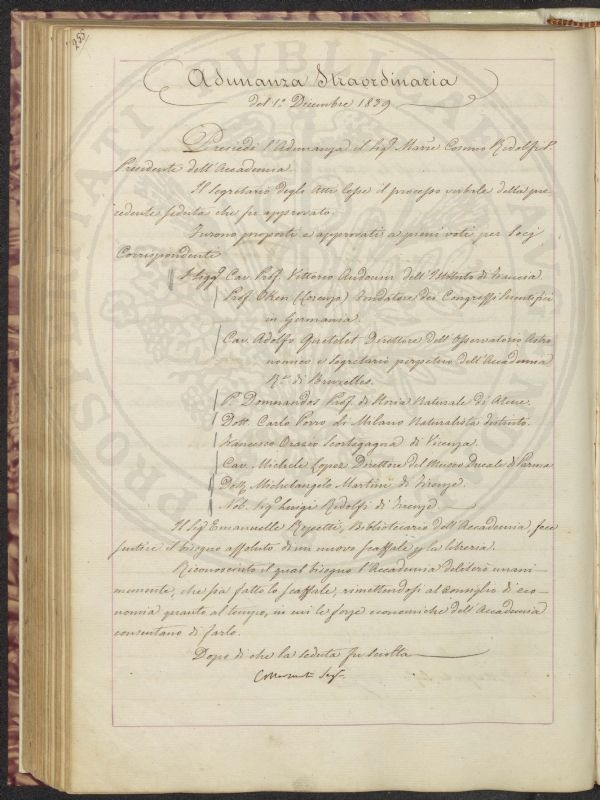 255
Adunanza Straordinaria
del 1º Decembre 1839
Presiedè l'Adunanza il Sigr Marse Cosimo Ridolfi
Presidente dell'Accademia.
Il Segretario degli Atti lesse il processo verbale della pre-
cedente seduta che fu approvato.
Furono proposti e approvati a pieni voti per Socj
Corrispondenti
I Sigg. Cav. Prof. Vittorio Audouin dell'Istituto di Francia
Prof. Oken (Lorenzo) Fondatore dei Congressi Scientifici
in Germania.
Cav. Adolfo Quetelet Direttore dell'Osservatorio Astro
nomico e Segretario perpetuo dell'Accademia
Rle di Bruxelles.
Pr Domnandos Prof. di Storia Naturale di Atene.
Dott. Carlo Porro di Milano Naturalista distinto.
Francesco Orazio Scortegagna di Vicenza.
Cav. Michele Lopez Direttore del Museo Ducale di Parma
Dott. Michelangelo Martini di Firenze.
Nob. Sigr Luigi Ridolfi di Firenze.
Il Sigr Emanuelle Repetti, Bibliotecario dell'Accademia, fece
sentire il bisogno assoluto di un nuovo scaffale per la libreria.
Riconosciuto il qual bisogno l'Accademia deliberò unani-
memente, che sia fatto lo scaffale, rimettendosi al consiglio di eco-
nomia quanto al tempo, in cui le forze economiche dell'Accademia
consentano di farlo.
Dopo di che la seduta fu sciolta
Segr.
PROSPERITATI PVBLICAE